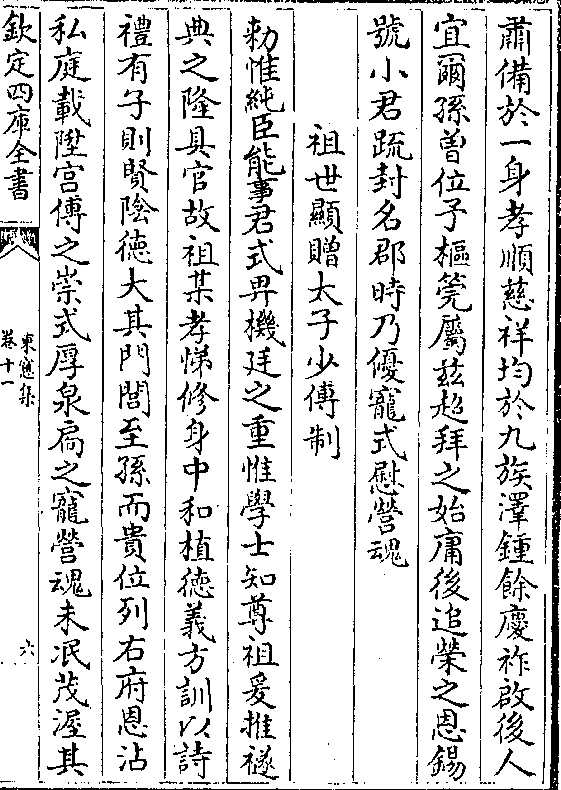 肅備於一身孝順慈祥均於九族澤鍾餘慶祚啟後人
宜爾孫曽位予樞筦屬兹超拜之始庸後追榮之恩錫
號小君疏封名郡時乃優寵式慰營魂
祖世顯贈太子少傅制
勅惟純臣能事君式畀機廷之重惟學士知尊祖爰推襚
典之隆具官故祖某孝悌修身中和植徳義方訓以詩
禮有子則賢隂徳大其門閭至孫而貴位列右府恩沾
私庭載陞宫傅之崇式厚泉扃之寵營魂未泯茂渥其
欽定四庫全書
東窻集
卷十一
六